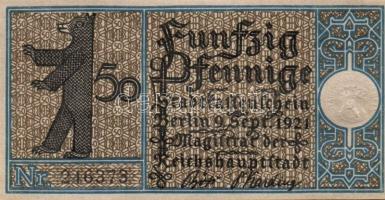 50
Funfzig
Pfennige
Stadtkassenschein
Berlin 9. Sept. 1921
Magistrat der
Reichshauptstadt
Nr. 246373